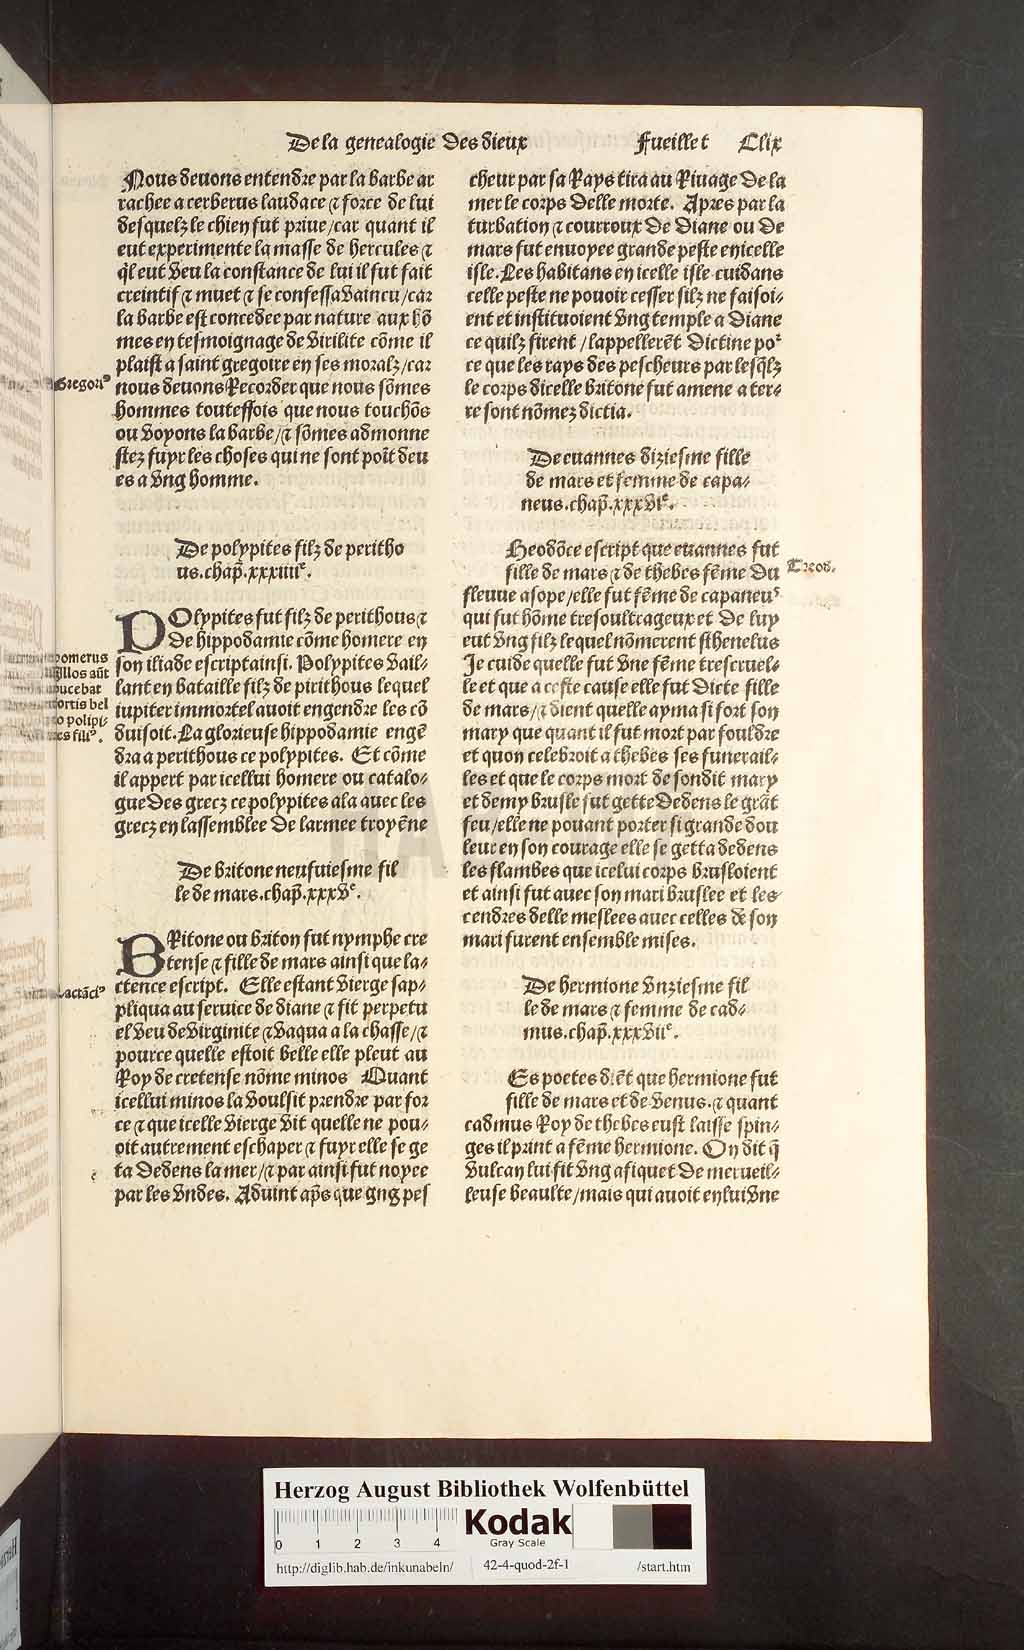 De la genealogie des dieux Fueillet Clix
Nous deuons entendre par la barbe ar
rachee a cerberus laudace ⁊ force de lui
desquelz le chien fut priue/car quant il
eut experimente la masse de hercules ⁊
ql̃ eut veu la constance de lui il fut fait
creintif ⁊ muet ⁊ se confessa vaincu/car
la barbe est concedee par nature aux hõ
mes en tesmoignage de virilite cõme il
plaist a saint gregoire en ses moralz/car
nous deuons Recorder que nous sõmes
hommes touteffois que nous touchõs
ou voyons la barbe/⁊ sõmes admonne
stez fuyr les choses qui ne sont poĩt deu
es a vng homme.
Gregoriꝰ
De polypites filz de peritho
us.chap̃.xxxiiiie.
POlypites fut filz de perithous ⁊
de hippodamie cõme homere en
son iliade escript ainsi. Polypites vail-
lant en bataille filz de pirithous lequel
iupiter immortel auoit engendre les cõ
duisoit. La glorieuse hippodamie engẽ
dra a perithous ce polypites. Et cõme
il appert par icellui homere ou catalo-
gue des grecz ce polypites ala auec les
grecz en lassemblee de larmee troyẽne
omerus
illos aũt
ucebat
ortis bel
o polipi-
es filiꝰ.
De britone neufuiesme fil
le de mars.chap̃.xxxve.
BRitone ou briton fut nymphe cre
tense ⁊ fille de mars ainsi que la-
ctence escript. Elle estant vierge sap-
pliqua au seruice de diane ⁊ fit perpetu
el veu de virginite ⁊ vaqua a la chasse/⁊
pource quelle estoit belle elle pleut au
Roy de cretense nõme minos Quant
icellui minos la voulsit prendre par for
ce ⁊ que icelle vierge vit quelle ne pou-
oit autrement eschaper ⁊ fuyr elle se ge
ta dedens la mer/⁊ par ainsi fut noyee
par les vndes. Aduint ap̃s que gng pes
Lactãciꝰ
cheur par sa Rays tira au Riuage de la
mer le corps delle morte. Apres par la
turbation ⁊ courroux de diane ou de
mars fut enuoyee grande peste en icelle
isle. Les habitans en icelle isle cuidans
celle peste ne pouoir cesser silz ne faisoi-
ent et instituoient vng temple a diane
ce quilz firent/lappellerẽt dictine poꝛ
ce que les rays des pescheurs par lesq̃lz
le corps dicelle britone fut amene a ter-
re sont nõmez dictia.
De euannes diziesme fille
de mars et femme de capa-
neus.chap̃.xxxvie.
Heodõce escript que euannes fut
fille de mars ⁊ de thebes fẽme du
fleuue asope/elle fut fẽme de capaneuꝰ
qui fut hõme tresoultrageux et de luy
eut vng filz lequel nõmerent sthenelus
Je cuide quelle fut vne fẽme trescruel-
le et que a ceste cause elle fut dicte fille
de mars/⁊ dient quelle ayma si fort son
mary que quant il fut mort par fouldre
et quon celebroit a thebes ses funerail-
les et que le corps mort de sondit mary
et demy brusle fut gette dedens le grãt
feu/elle ne pouant porter si grande dou
leur en son courage elle se getta dedens
les flambes que icelui corps brusloient
et ainsi fut auec son mari bruslee et les
cendres delle meslees auec celles de son
mari furent ensemble mises.
Theod.
De hermione vnziesme fil
le de mars ⁊ femme de cad-
mus.chap̃.xxxviie.
Es poetes diẽt que hermione fut
fille de mars et de venus.⁊ quant
cadmus Roy de thebes eust laisse spin-
ges il print a fẽme hermione. On dit q̃
vulcan lui fit vng afiquet de merueil-
leuse beaulte/mais qui auoit en lui vne
HAB
Herzog August Bibliothek Wolfenbüttel
0 1 2 3 4
Kodak
Gray Scale
http://diglib.hab.de/inkunabeln/ 42-4-quod-2f-1 /start.htm